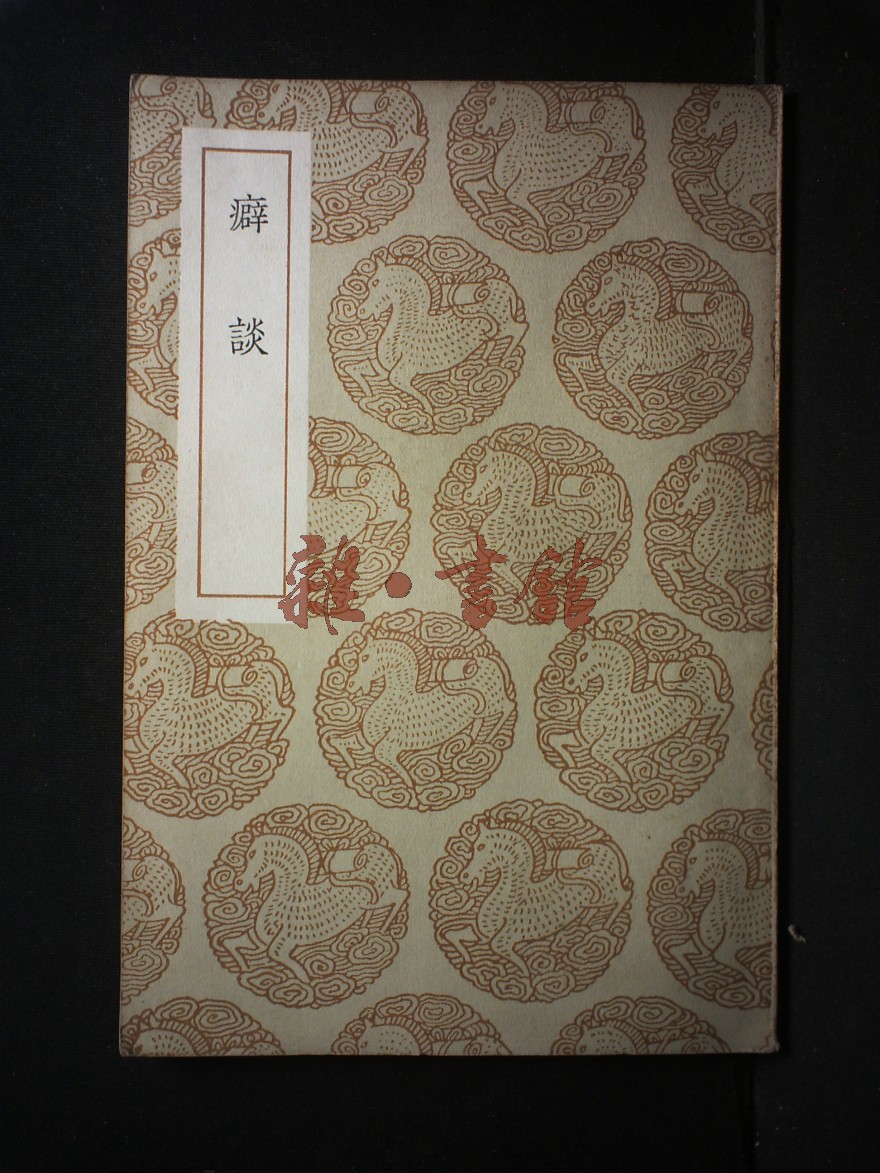 癖談
雜·書館